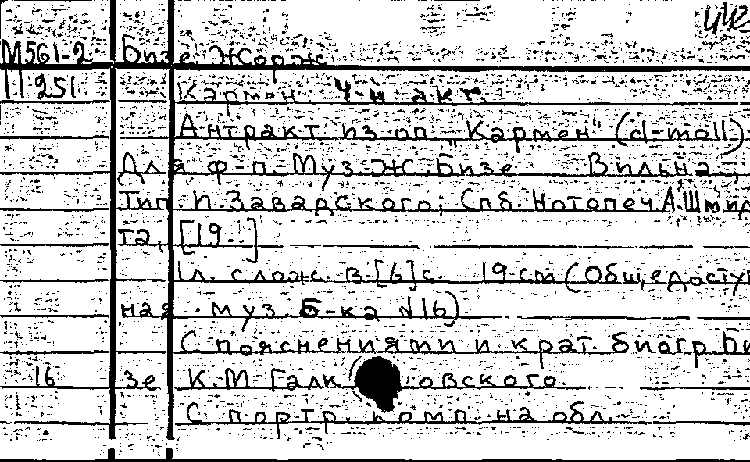 442
М561-2 Бизе Жорж
11251 Кармен. 4-й акт.
Антракт из оп. „Кармен" (d-moll).
Для ф-п. Муз. Ж. Бизе Вильна,
Тип. П. Завадского; Спб. Нотопеч. А. Шмид
та, [19..]
1 л. слож. в [6] с. 19 см (Общедоступ
ная муз. б-ка №16)
С пояснениями и крат. биогр. Би
16 зе К. М. Галк овского.
С портр. комп. на обл.